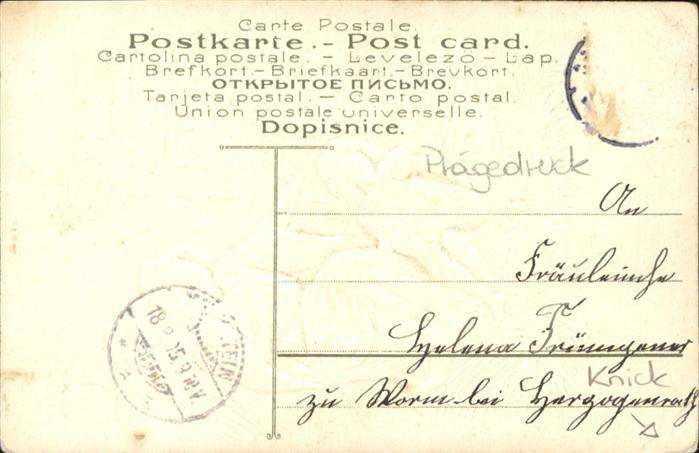 Carte Postale.
Postkarte.- Post card.
Cartolina postale. - Levelező - Lap.
Brefkort.- Briefkaart.- Brevkort.
ОТКРЫТОЕ ПИСЬМО.
Tarjeta postal. - Carto postal.
Union postale universelle.
Dopisnice.
Prägedruck
An
Fräulein
Helena
Knick
zu Worm bei Herzogenrath